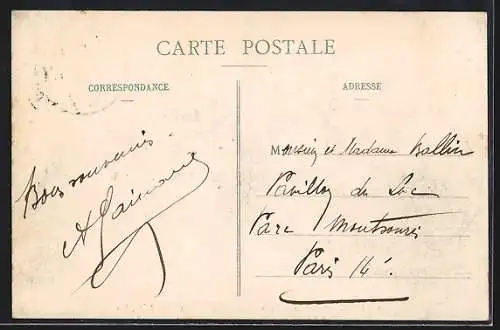 CARTE POSTALE
CORRESPONDANCE
Bons souvenirs
ADRESSE
Monsieur et Madame Ballier
Pavillon du Lac
Parc Montsouris
Paris 14e.